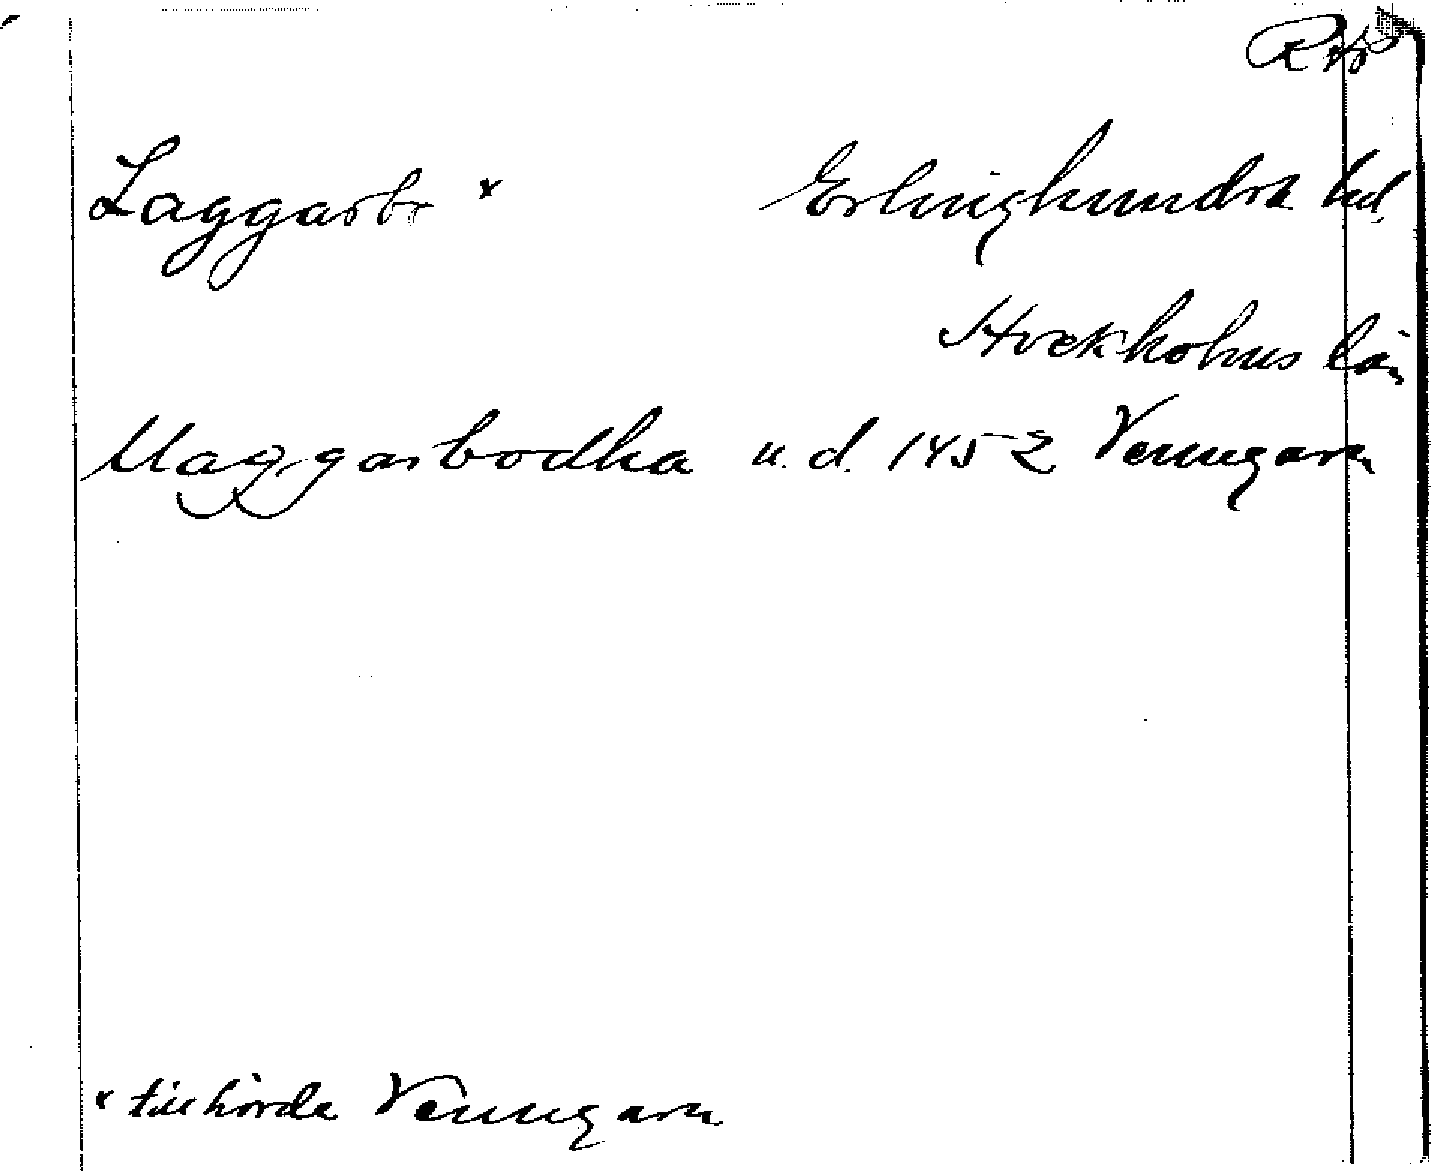 Laggarbo x Erlinghundra hd.
Stockholms län
Maggasbodha u. d. 1452 Venngarn
x tillhörde Venngarn